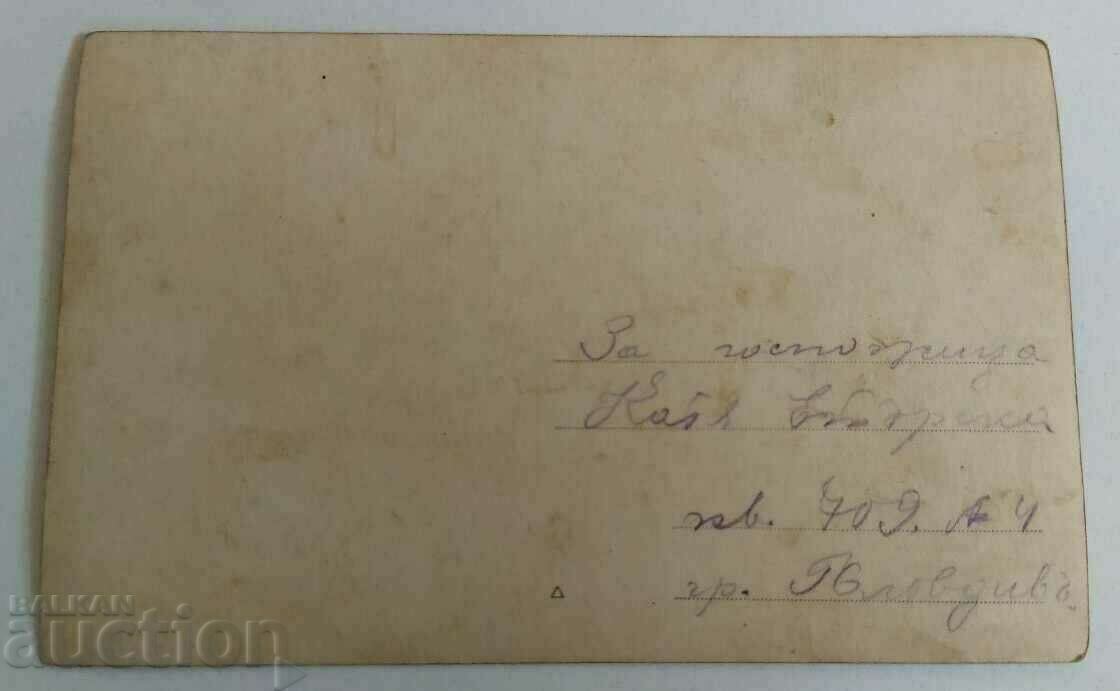 За госпожица
Катя
кв. 709. А 4
гр. Пловдивъ
BALKAN
auction